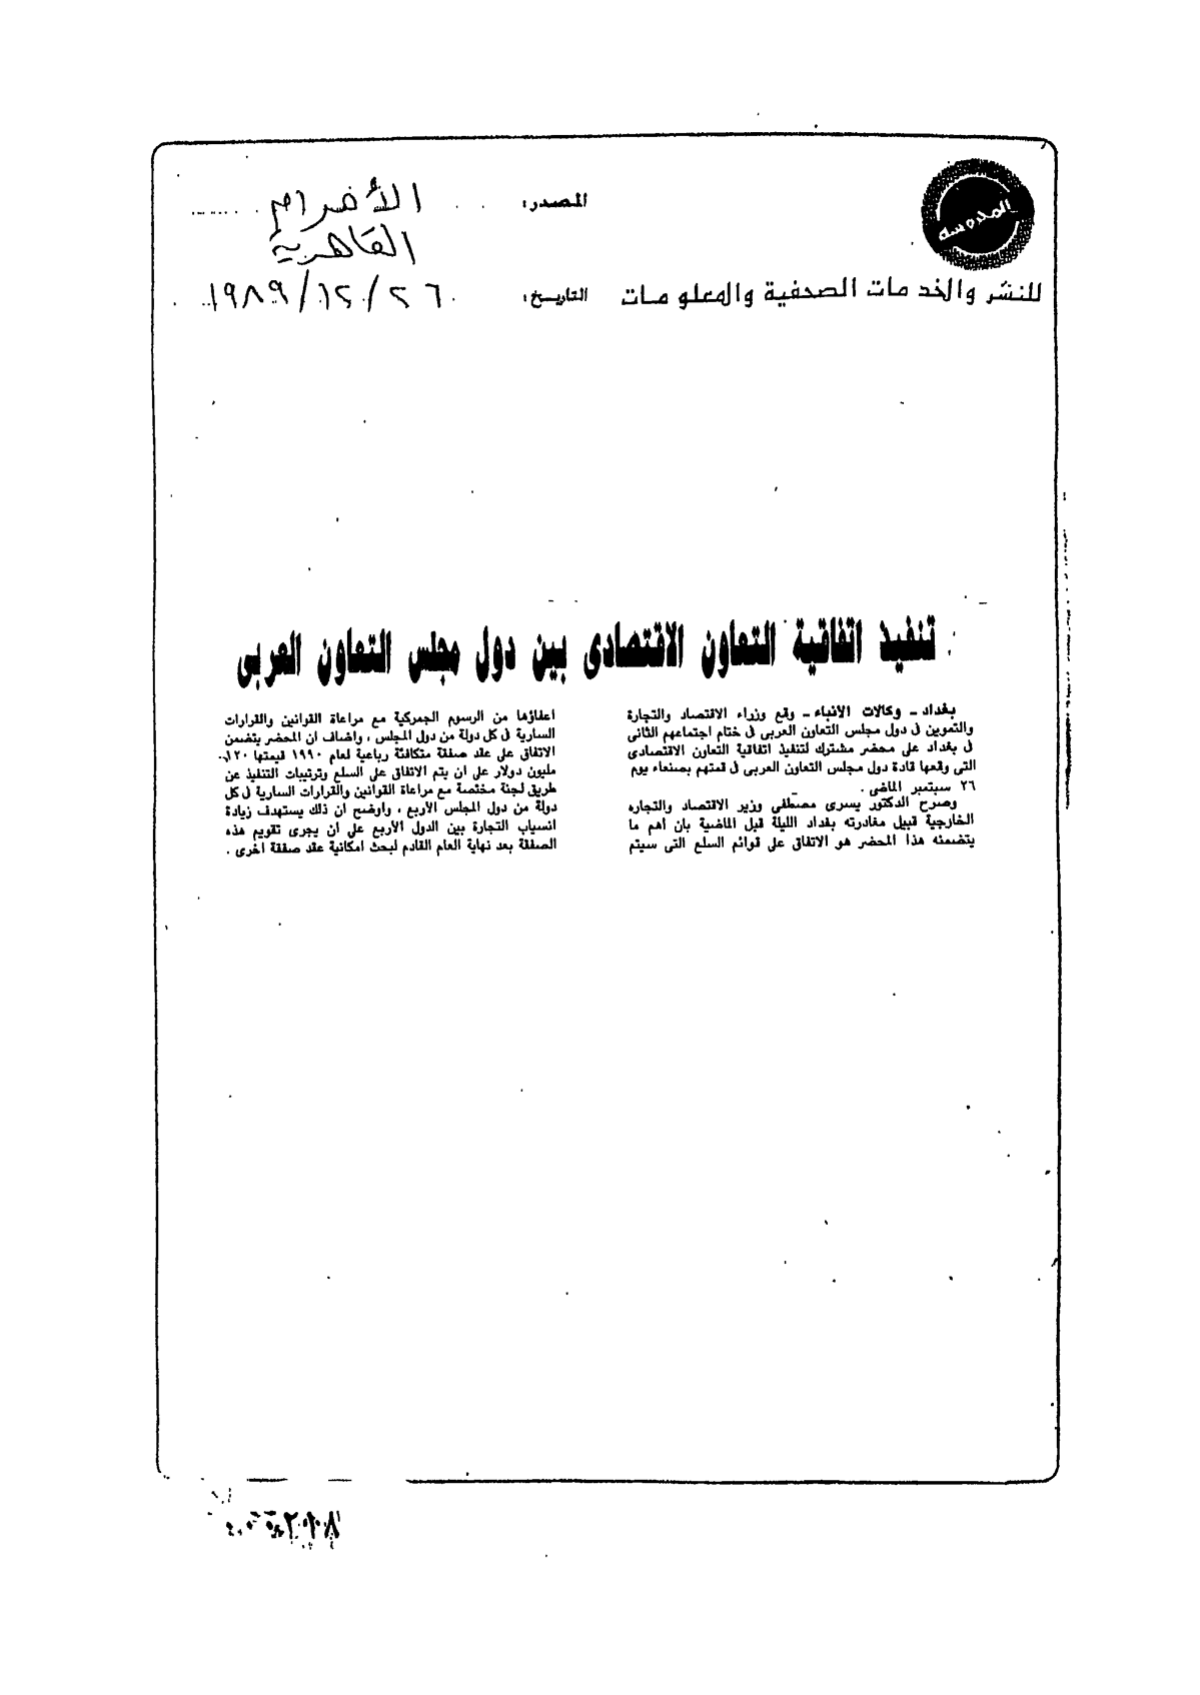 المحروسة
للنشر والخدمات الصحفية والمعلومات
المصدر: الأهرام
القاهرية
التاريخ: ٢٦/١٢/١٩٨٩
تنفيذ اتفاقية التعاون الاقتصادى بين دول مجلس التعاون العربى
بغداد ـ وكالات الانباء ـ وقع وزراء الاقتصاد والتجارة
والتموين فى دول مجلس التعاون العربى فى ختام اجتماعهم الثانى
فى بغداد على محضر مشترك لتنفيذ اتفاقية التعاون الاقتصادى
التى وقعها قادة دول مجلس التعاون العربى فى قمتهم بصنعاء يوم
٢٦ سبتمبر الماضى .
وصرح الدكتور يسرى مصطفى وزير الاقتصاد والتجاره
الخارجية قبيل مغادرته بغداد الليلة قبل الماضية بان اهم ما
يتضمنه هذا المحضر هو الاتفاق على قوائم السلع التى سيتم
اعفاؤها من الرسوم الجمركية مع مراعاة القوانين والقرارات
السارية فى كل دولة من دول المجلس ، واضاف ان المحضر يتضمن
الاتفاق على عقد صفقة متكافئة رباعية لعام ١٩٩٠ قيمتها ١٢٠
مليون دولار على ان يتم الاتفاق على السلع وترتيبات التنفيذ عن
طريق لجنة مختصة مع مراعاة القوانين والقرارات السارية فى كل
دولة من دول المجلس الأربع ، واوضح ان ذلك يستهدف زيادة
انسياب التجارة بين الدول الأربع على ان يجرى تقويم هذه
الصفقة بعد نهاية العام القادم لبحث امكانية عقد صفقة اخرى .